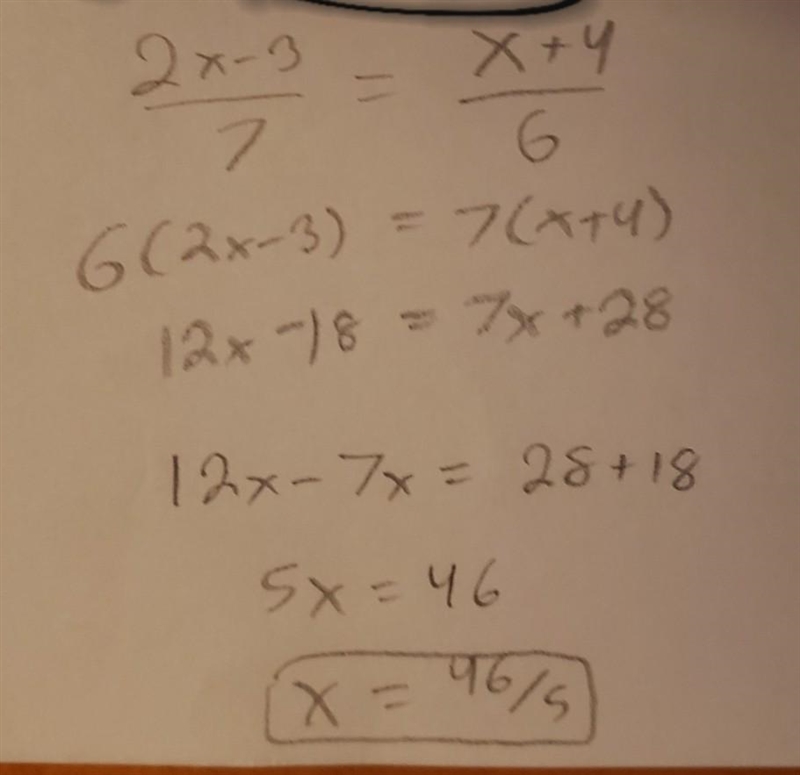 2x-3/7 = x+4/6
6(2x-3) = 7(x+4)
12x -18 = 7x+28
12x - 7x = 28+18
5x = 46
x = 46/5